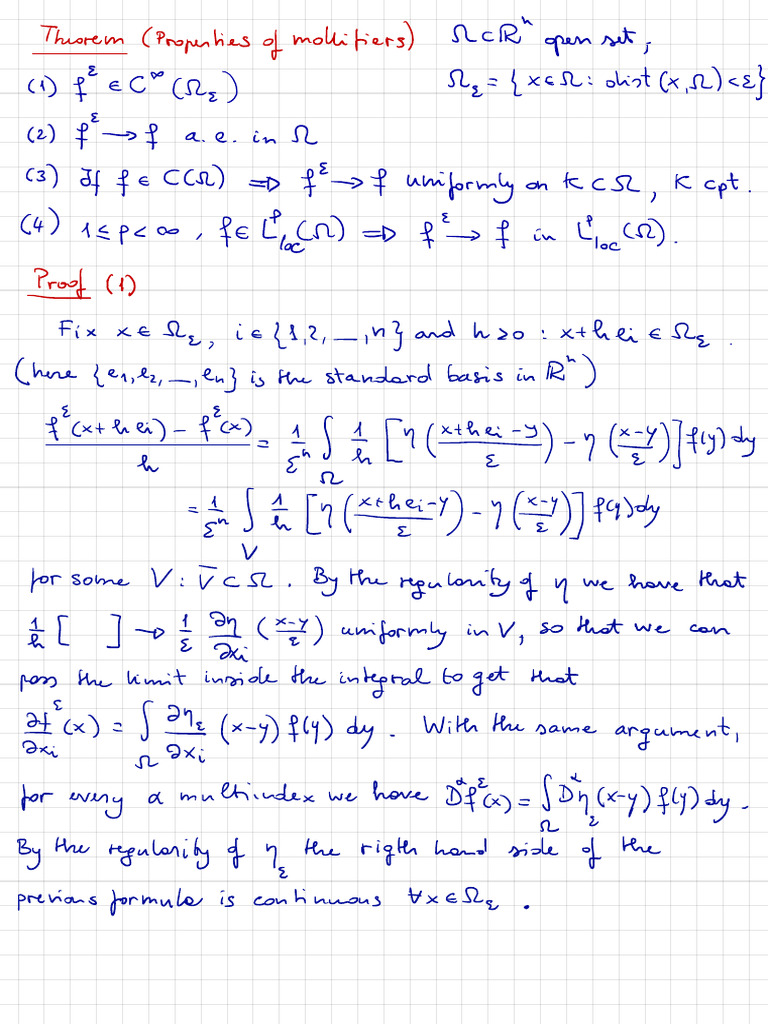 Theorem (Properties of mollifiers) Ω⊂ℝⁿ open set,
(1) f^ε ∈ C^∞(Ω_ε) Ω_ε = {x∈Ω: dist(x,Ω)<ε}
(2) f^ε → f a.e. in Ω
(3) If f ∈ C(Ω) ⇒ f^ε → f uniformly on K⊂Ω, K cpt.
(4) 1≤p<∞, f∈L^p_loc(Ω) ⇒ f^ε → f in L^p_loc(Ω).
Proof (1)
Fix x∈Ω_ε, i∈{1,2,…,n} and h>0 : x+he_i ∈ Ω_ε.
(here {e_1,e_2,…,e_n} is the standard basis in ℝⁿ)
(f^ε(x+he_i) − f^ε(x))/h = 1/ε^n ∫_Ω 1/h [η((x+he_i−y)/ε) − η((x−y)/ε)] f(y)dy
= 1/ε^n ∫_V 1/h [η((x+he_i−y)/ε) − η((x−y)/ε)] f(y)dy
for some V: V̅⊂Ω. By the regularity of η we have that
1/h [ ] → 1/ε ∂η/∂x_i ((x−y)/ε) uniformly in V, so that we can
pass the limit inside the integral to get that
∂f^ε/∂x_i (x) = ∫_Ω ∂η_ε/∂x_i (x−y) f(y) dy. With the same argument,
for every α multiindex we have D^α f^ε(x) = ∫_Ω D^α η_ε (x−y) f(y) dy.
By the regularity of η_ε the rigth hand side of the
previous formula is continuous ∀x∈Ω_ε.